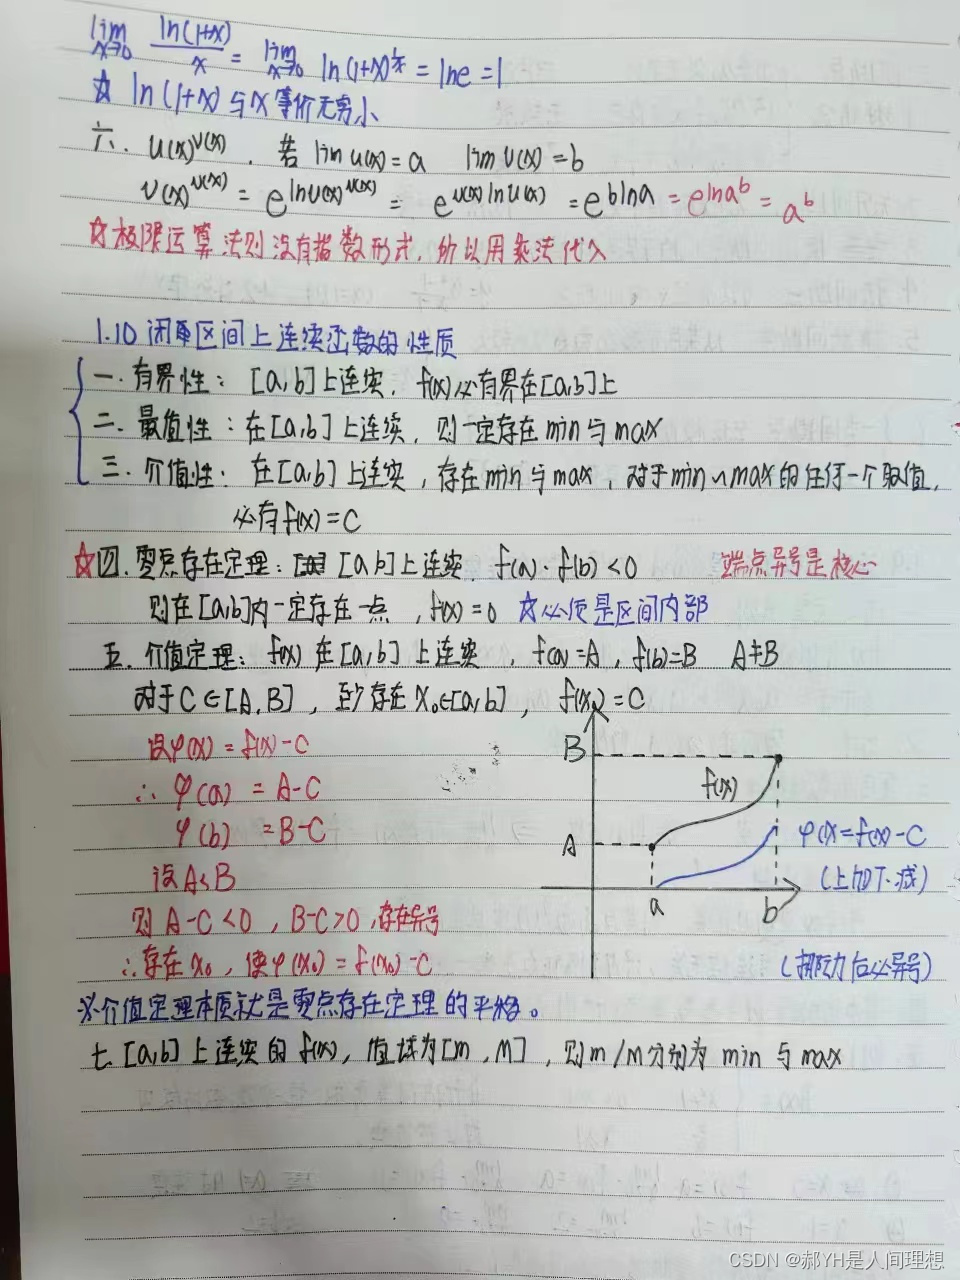 lim x→0 ln(1+x)/x = lim x→0 ln(1+x)^(1/x) = lne = 1
☆ ln(1+x)与x等价无穷小
六. u(x)^v(x). 若 lim u(x) = a lim v(x) = b
u(x)^v(x) = e^(ln u(x)^v(x)) = e^(v(x) ln u(x)) = e^(b ln a) = e^(ln a^b) = a^b
☆极限运算法则没有指数形式, 所以用乘法代入
1.10 闭区间上连续函数的性质
一. 有界性: [a,b]上连续. f(x)必有界在[a,b]上
二. 最值性: 在[a,b]上连续, 则一定存在min与max
三. 介值性: 在[a,b]上连续, 存在min与max, 对于min~max的任何一个取值,
必有f(x)=C
☆四. 零点存在定理: [a,b]上连续. f(a)·f(b)<0 端点异号是核心
则在[a,b]内一定存在一点, f(x)=0 ☆必须是区间内部
五. 介值定理: f(x)在[a,b]上连续, f(a)=A, f(b)=B A≠B
对于C∈[A,B], 至少存在x₀∈[a,b], f(x₀)=C
设φ(x)=f(x)-C
∴ φ(a) = A-C
φ(b) = B-C
设A<B
则 A-C<0, B-C>0, 存在异号
∴存在x₀, 使φ(x₀)=f(x₀)-C
B
f(x)
A
φ(x=f(x)-C
(上加下减)
a
b
(挪动后必异号)
※介值定理本质就是零点存在定理的平移。
七. [a,b]上连续的f(x), 值域为[m,M], 则m/M分别为min与max
CSDN @郝YH是人间理想